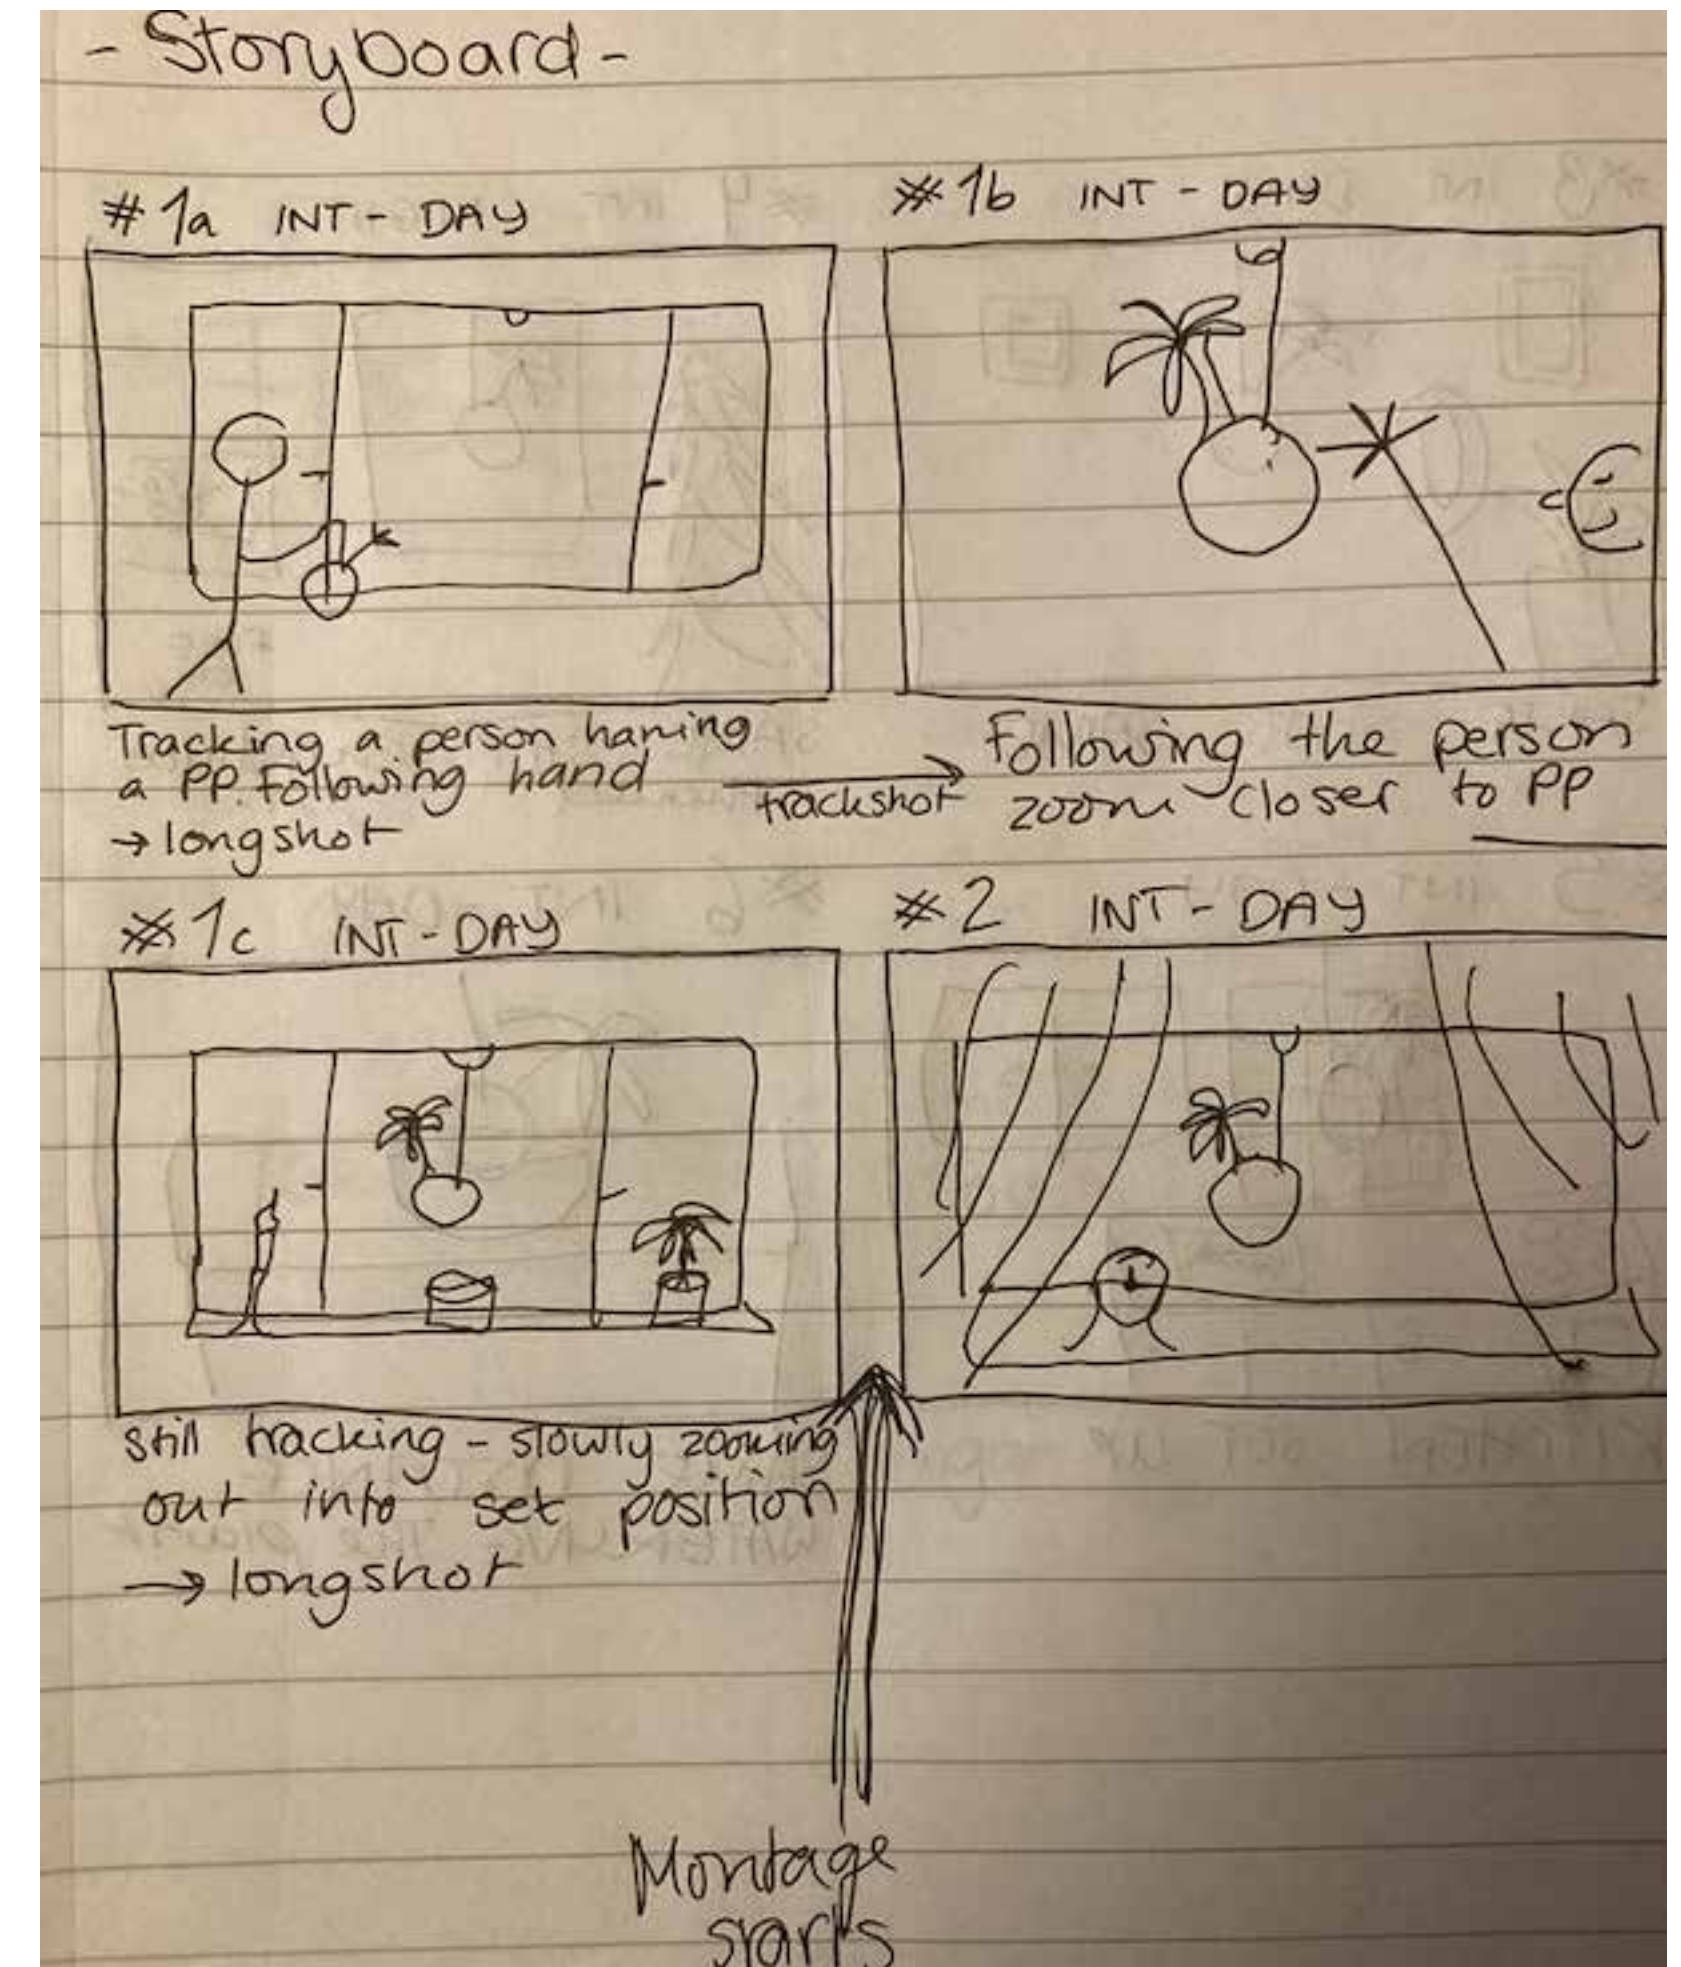 - Storyboard -
# 1a INT - DAY
# 1b INT - DAY
Tracking a person having
a PP. Following hand
→ longshot
trackshot
Following the person
zoom closer to PP
# 1c INT - DAY
# 2 INT - DAY
still tracking - slowly zooming
out into set position
→ longshot
Montage
starts